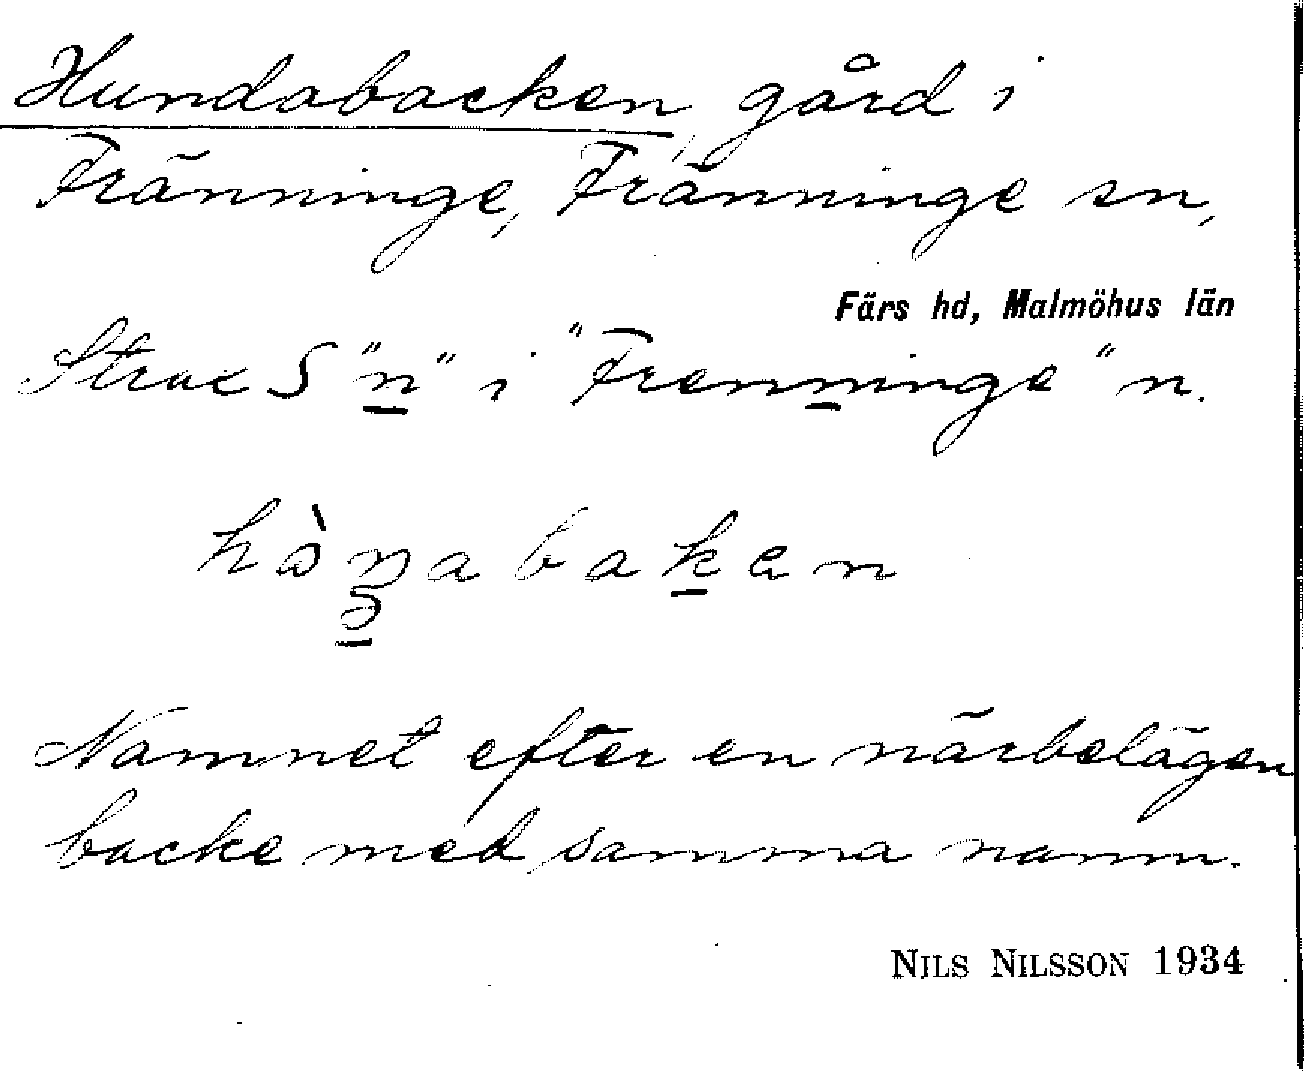 Hundabacken, gård i
Fränninge, Fränninge sn,
Färs hd, Malmöhus län
Strax S "n" i "Frenninge" n.
hàŋabaken
Namnet efter en närbelägen
backe med samma namn.
NILS NILSSON 1934